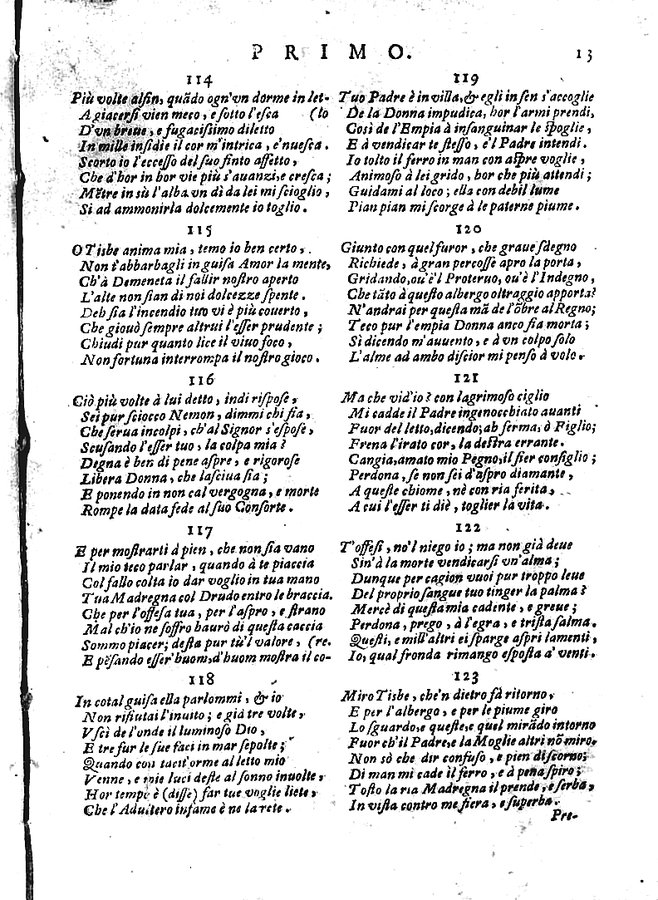 PRIMO. 13
114
Più volte alfin, quãdo ogn'vn dorme in let-
A giacersi vien meco, e sotto l'esca (to
D'vn breue, e fugacissimo diletto
In mille insidie il cor m'intrica, e'nuesca.
Scorto io l'eccesso del suo finto affetto,
Che d'hor in hor vie più s'auanzi, e cresca;
Mẽtre in sù l'alba vn dì da lei mi scioglio,
Sì ad ammonirla dolcemente io toglio.
115
O Tisbe anima mia, temo io ben certo,
Non t'abbarbagli in guisa Amor la mente,
Ch'à Demeneta il fallir nostro aperto
L'alte non sian di noi dolcezze spente.
Deh sia l'incendio tuo vi è più couerto,
Che giouò sempre altrui l'esser prudente;
Chiudi pur quanto lice il viuo foco,
Non fortuna interrompa il nostro gioco.
116
Ciò più volte à lui detto, indi rispose,
Sei pur sciocco Nemon, dimmi chi sia,
Che serua incolpi, ch'al Signor s'espose,
Scusando l'esser tuo, la colpa mia?
Degna è ben di pene aspre, e rigorose
Libera Donna, che lasciua sia;
E ponendo in non cal vergogna, e morte
Rompe la data fede al suo Consorte.
117
E per mostrarti à pien, che non sia vano
Il mio teco parlar, quando à te piaccia
Col fallo colta io dar voglio in tua mano
Tua Madregna col Drudo entro le braccia.
Che per l'offesa tua, per l'aspro, e strano
Mal ch'io ne soffro haurò di questa caccia
Sommo piacer; desta pur tù'l valore, (re.
E pẽsando esser'huom, d'huom mostra il co-
118
In cotal guisa ella parlommi, & io
Non rifiutai l'inuito; e già tre volte,
Vscì de l'onde il luminoso Dio,
E tre fur le sue faci in mar sepolte;
Quando con tacit'orme al letto mio
Venne, e mie luci deste al sonno inuolte,
Hor tempo è (disse) far tue voglie liete,
Che l'Adultero infame è ne la rete.
119
Tuo Padre è in villa, & egli in sen s'accoglie
De la Donna impudica, hor l'armi prendi,
Così de l'Empia à insanguinar le spoglie,
E à vendicar te stesso, e'l Padre intendi.
Io tolto il ferro in man con aspre voglie,
Animoso à lei grido, hor che più attendi;
Guidami al loco; ella con debil lume
Pian pian mi scorge à le paterne piume.
120
Giunto con quel furor, che graue sdegno
Richiede, à gran percosse apro la porta,
Gridando, ou'è'l Proteruo, ou'è l'Indegno,
Che tãto à questo albergo oltraggio apporta?
N'andrai per questa mã de l'õbre al Regno;
Teco pur l'empia Donna anco sia morta;
Sì dicendo m'auuento, e à vn colpo solo
L'alme ad ambo discior mi penso à volo.
121
Ma che vid'io? con lagrimoso ciglio
Mi cadde il Padre ingenocchiato auanti
Fuor del letto, dicendo; ah ferma, ò Figlio;
Frena l'irato cor, la destra errante.
Cangia, amato mio Pegno, il fier consiglio;
Perdona, se non sei d'aspro diamante,
A queste chiome, nè con ria ferita,
A cui l'esser ti diè, toglier la vita.
122
T'offesi, no'l niego io; ma non già deue
Sin'à la morte vendicarsi vn'alma;
Dunque per cagion vuoi pur troppo leue
Del proprio sangue tuo tinger la palma?
Mercè di questa mia cadente, e greue;
Perdona, prego, à l'egra, e trista salma.
Questi, e mill'altri ei sparge aspri lamenti,
Io, qual fronda rimango esposta a' venti.
123
Miro Tisbe, che'n dietro fà ritorno,
E per l'albergo, e per le piume giro
Lo sguardo, e queste, e quel mirãdo intorno
Fuor ch'il Padre, e la Moglie altri nõ miro.
Non sò che dir confuso, e pien di scorno;
Di man mi cade il ferro, e à pena spiro;
Tosto la ria Madregna il prende, e serba,
In vista contro me fiera, e superba.
Pre-